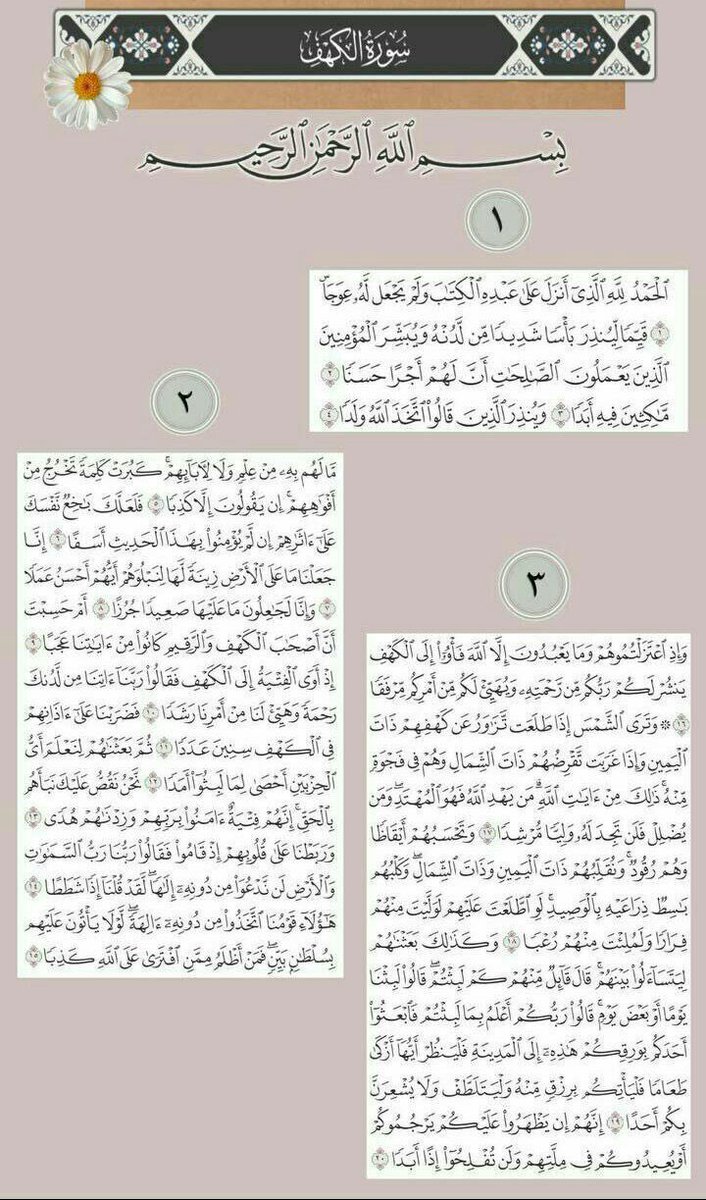 سُورَةُ الكَهْفِ
بِسْمِ ٱللَّهِ ٱلرَّحْمَٰنِ ٱلرَّحِيمِ
١
ٱلْحَمْدُ لِلَّهِ ٱلَّذِىٓ أَنزَلَ عَلَىٰ عَبْدِهِ ٱلْكِتَٰبَ وَلَمْ يَجْعَل لَّهُۥ عِوَجَاۜ
١ قَيِّمًا لِّيُنذِرَ بَأْسًا شَدِيدًا مِّن لَّدُنْهُ وَيُبَشِّرَ ٱلْمُؤْمِنِينَ
ٱلَّذِينَ يَعْمَلُونَ ٱلصَّٰلِحَٰتِ أَنَّ لَهُمْ أَجْرًا حَسَنًا ٢
مَّٰكِثِينَ فِيهِ أَبَدًا ٣ وَيُنذِرَ ٱلَّذِينَ قَالُوا۟ ٱتَّخَذَ ٱللَّهُ وَلَدًا ٤
٢
مَّا لَهُم بِهِۦ مِنْ عِلْمٍ وَلَا لِـَٔابَآئِهِمْ ۚ كَبُرَتْ كَلِمَةً تَخْرُجُ مِنْ
أَفْوَٰهِهِمْ ۚ إِن يَقُولُونَ إِلَّا كَذِبًا ٥ فَلَعَلَّكَ بَٰخِعٌ نَّفْسَكَ
عَلَىٰٓ ءَاثَٰرِهِمْ إِن لَّمْ يُؤْمِنُوا۟ بِهَٰذَا ٱلْحَدِيثِ أَسَفًا ٦ إِنَّا
جَعَلْنَا مَا عَلَى ٱلْأَرْضِ زِينَةً لَّهَا لِنَبْلُوَهُمْ أَيُّهُمْ أَحْسَنُ عَمَلًا
٧ وَإِنَّا لَجَٰعِلُونَ مَا عَلَيْهَا صَعِيدًا جُرُزًا ٨ أَمْ حَسِبْتَ
أَنَّ أَصْحَٰبَ ٱلْكَهْفِ وَٱلرَّقِيمِ كَانُوا۟ مِنْ ءَايَٰتِنَا عَجَبًا ٩
إِذْ أَوَى ٱلْفِتْيَةُ إِلَى ٱلْكَهْفِ فَقَالُوا۟ رَبَّنَآ ءَاتِنَا مِن لَّدُنكَ
رَحْمَةً وَهَيِّئْ لَنَا مِنْ أَمْرِنَا رَشَدًا ١٠ فَضَرَبْنَا عَلَىٰٓ ءَاذَانِهِمْ
فِى ٱلْكَهْفِ سِنِينَ عَدَدًا ١١ ثُمَّ بَعَثْنَٰهُمْ لِنَعْلَمَ أَىُّ
ٱلْحِزْبَيْنِ أَحْصَىٰ لِمَا لَبِثُوٓا۟ أَمَدًا ١٢ نَّحْنُ نَقُصُّ عَلَيْكَ نَبَأَهُم
بِٱلْحَقِّ ۚ إِنَّهُمْ فِتْيَةٌ ءَامَنُوا۟ بِرَبِّهِمْ وَزِدْنَٰهُمْ هُدًى ١٣
وَرَبَطْنَا عَلَىٰ قُلُوبِهِمْ إِذْ قَامُوا۟ فَقَالُوا۟ رَبُّنَا رَبُّ ٱلسَّمَٰوَٰتِ
وَٱلْأَرْضِ لَن نَّدْعُوَا۟ مِن دُونِهِۦٓ إِلَٰهًا ۖ لَّقَدْ قُلْنَآ إِذًا شَطَطًا ١٤
هَٰٓؤُلَآءِ قَوْمُنَا ٱتَّخَذُوا۟ مِن دُونِهِۦٓ ءَالِهَةً ۖ لَّوْلَا يَأْتُونَ عَلَيْهِم
بِسُلْطَٰنٍۭ بَيِّنٍ ۖ فَمَنْ أَظْلَمُ مِمَّنِ ٱفْتَرَىٰ عَلَى ٱللَّهِ كَذِبًا ١٥
٣
وَإِذِ ٱعْتَزَلْتُمُوهُمْ وَمَا يَعْبُدُونَ إِلَّا ٱللَّهَ فَأْوُۥٓا۟ إِلَى ٱلْكَهْفِ
يَنشُرْ لَكُمْ رَبُّكُم مِّن رَّحْمَتِهِۦ وَيُهَيِّئْ لَكُم مِّنْ أَمْرِكُم مِّرْفَقًا
١٦ ۞ وَتَرَى ٱلشَّمْسَ إِذَا طَلَعَت تَّزَٰوَرُ عَن كَهْفِهِمْ ذَاتَ
ٱلْيَمِينِ وَإِذَا غَرَبَت تَّقْرِضُهُمْ ذَاتَ ٱلشِّمَالِ وَهُمْ فِى فَجْوَةٍ
مِّنْهُ ۚ ذَٰلِكَ مِنْ ءَايَٰتِ ٱللَّهِ ۗ مَن يَهْدِ ٱللَّهُ فَهُوَ ٱلْمُهْتَدِ ۖ وَمَن
يُضْلِلْ فَلَن تَجِدَ لَهُۥ وَلِيًّا مُّرْشِدًا ١٧ وَتَحْسَبُهُمْ أَيْقَاظًا
وَهُمْ رُقُودٌ ۚ وَنُقَلِّبُهُمْ ذَاتَ ٱلْيَمِينِ وَذَاتَ ٱلشِّمَالِ ۖ وَكَلْبُهُم
بَٰسِطٌ ذِرَاعَيْهِ بِٱلْوَصِيدِ ۚ لَوِ ٱطَّلَعْتَ عَلَيْهِمْ لَوَلَّيْتَ مِنْهُمْ
فِرَارًا وَلَمُلِئْتَ مِنْهُمْ رُعْبًا ١٨ وَكَذَٰلِكَ بَعَثْنَٰهُمْ
لِيَتَسَآءَلُوا۟ بَيْنَهُمْ ۚ قَالَ قَآئِلٌ مِّنْهُمْ كَمْ لَبِثْتُمْ ۖ قَالُوا۟ لَبِثْنَا
يَوْمًا أَوْ بَعْضَ يَوْمٍ ۚ قَالُوا۟ رَبُّكُمْ أَعْلَمُ بِمَا لَبِثْتُمْ فَٱبْعَثُوٓا۟
أَحَدَكُم بِوَرِقِكُمْ هَٰذِهِۦٓ إِلَى ٱلْمَدِينَةِ فَلْيَنظُرْ أَيُّهَآ أَزْكَىٰ
طَعَامًا فَلْيَأْتِكُم بِرِزْقٍ مِّنْهُ وَلْيَتَلَطَّفْ وَلَا يُشْعِرَنَّ
بِكُمْ أَحَدًا ١٩ إِنَّهُمْ إِن يَظْهَرُوا۟ عَلَيْكُمْ يَرْجُمُوكُمْ
أَوْ يُعِيدُوكُمْ فِى مِلَّتِهِمْ وَلَن تُفْلِحُوٓا۟ إِذًا أَبَدًا ٢٠